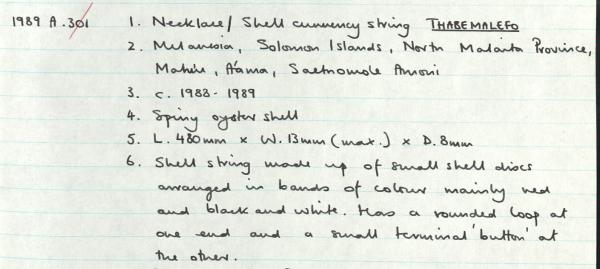 1989 A.301 1. Necklace/ Shell currency string THABEMALEFO
2. Melanesia, Solomon Islands, North Malaita Province,
A'ama,
3. c. 1988 - 1989
4. Spiny oyster shell
5. L. 480mm x W. 13mm (max.) x D. 8mm
6. Shell string made up of small shell discs
arranged in bands of colour mainly red
and black and white. Has a rounded loop at
one end and a small terminal 'button' at
the other.